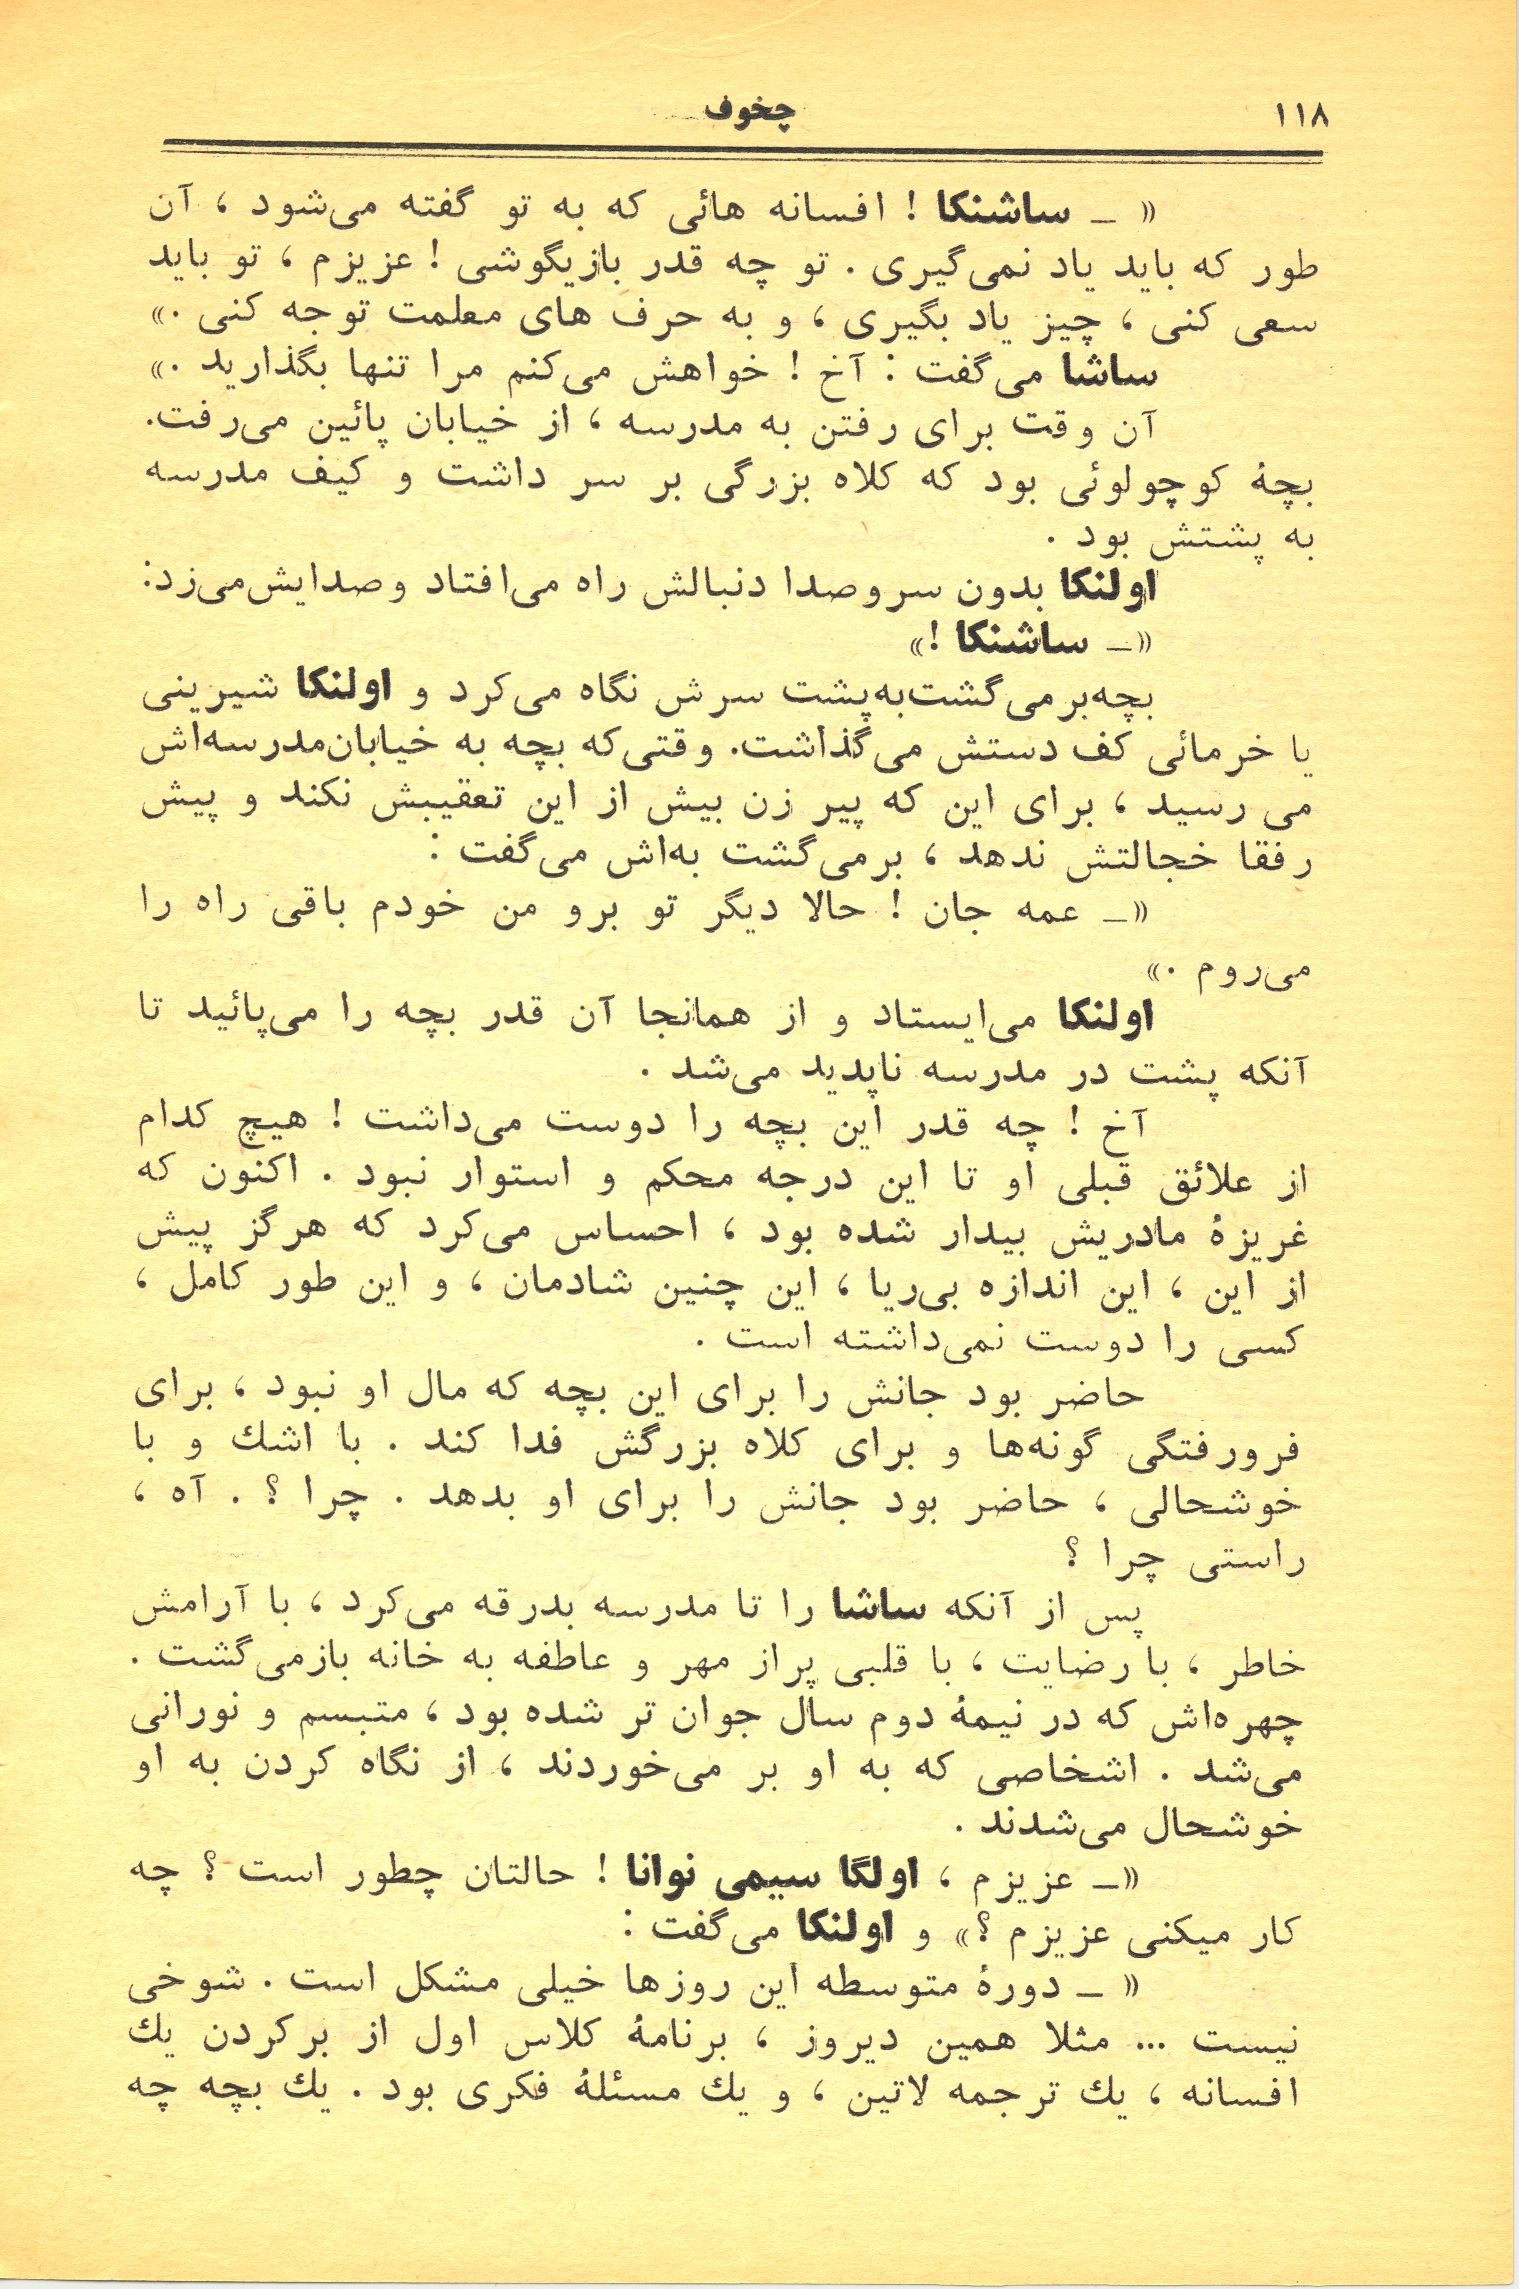 ۱۱۸
چخوف
« ـ ساشنکا ! افسانه هائی که به تو گفته می‌شود ، آن
طور که باید یاد نمی‌گیری . تو چه قدر بازیگوشی ! عزیزم ، تو باید
سعی کنی ، چیز یاد بگیری ، و به حرف های معلمت توجه کنی .»
ساشا می‌گفت : آخ ! خواهش می‌کنم مرا تنها بگذارید .»
آن وقت برای رفتن به مدرسه ، از خیابان پائین می‌رفت.
بچهٔ کوچولوئی بود که کلاه بزرگی بر سر داشت و کیف مدرسه
به پشتش بود .
اولنکا بدون سروصدا دنبالش راه می‌افتاد وصدایش‌می‌زد:
«ـ ساشنکا !»
بچه‌برمی‌گشت‌به‌پشت سرش نگاه می‌کرد و اولنکا شیرینی
یا خرمائی کف دستش می‌گذاشت. وقتی‌که بچه به خیابان‌مدرسه‌اش
می رسید ، برای این که پیر زن بیش از این تعقیبش نکند و پیش
رفقا خجالتش ندهد ، برمی‌گشت به‌اش می‌گفت :
«ـ عمه جان ! حالا دیگر تو برو من خودم باقی راه را
می‌روم .»
اولنکا می‌ایستاد و از همانجا آن قدر بچه را می‌پائید تا
آنکه پشت در مدرسه ناپدید می‌شد .
آخ ! چه قدر این بچه را دوست می‌داشت ! هیچ کدام
از علائق قبلی او تا این درجه محکم و استوار نبود . اکنون که
غریزهٔ مادریش بیدار شده بود ، احساس می‌کرد که هرگز پیش
از این ، این اندازه بی‌ریا ، این چنین شادمان ، و این طور کامل ،
کسی را دوست نمی‌داشته است .
حاضر بود جانش را برای این بچه که مال او نبود ، برای
فرورفتگی گونه‌ها و برای کلاه بزرگش فدا کند . با اشك و با
خوشحالی ، حاضر بود جانش را برای او بدهد . چرا ؟ . آه ،
راستی چرا ؟
پس از آنکه ساشا را تا مدرسه بدرقه می‌کرد ، با آرامش
خاطر ، با رضایت ، با قلبی پراز مهر و عاطفه به خانه بازمی‌گشت .
چهره‌اش که در نیمهٔ دوم سال جوان تر شده بود ، متبسم و نورانی
می‌شد . اشخاصی که به او بر می‌خوردند ، از نگاه کردن به او
خوشحال می‌شدند .
«ـ عزیزم ، اولگا سیمی نوانا ! حالتان چطور است ؟ چه
کار میکنی عزیزم ؟» و اولنکا می‌گفت :
« ـ دورهٔ متوسطه این روزها خیلی مشکل است . شوخی
نیست ... مثلا همین دیروز ، برنامهٔ کلاس اول از برکردن یك
افسانه ، یك ترجمه لاتین ، و یك مسئلهٔ فکری بود . یك بچه چه